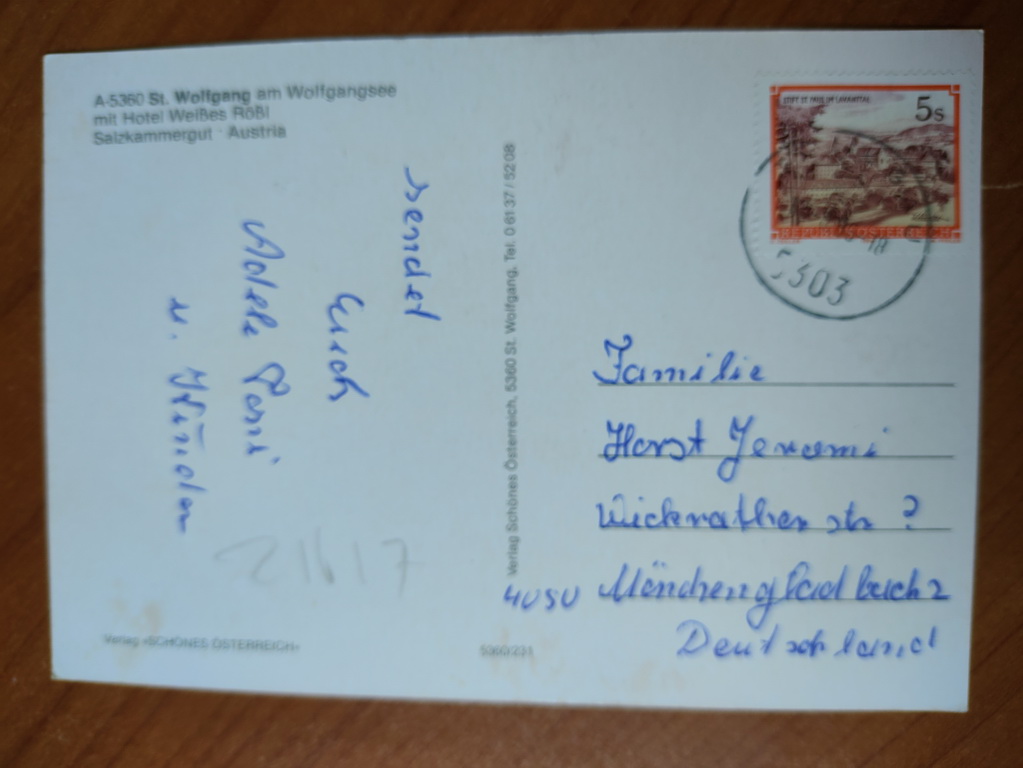 A-5360 St. Wolfgang am Wolfgangsee
mit Hotel Weißes Rößl
Salzkammergut · Austria
sendet
Euch
u. Kinder
Verlag «SCHÖNES ÖSTERREICH»
Verlag Schönes Österreich, 5360 St. Wolfgang, Tel. 0 61 37 / 52 08
5360/231
STIFT ST. PAUL IM LAVANTTAL
5s
REPUBLIK ÖSTERREICH
5303
Familie
Horst
Wickrather str ?
4050 Mönchengladbach 2
Deutschland